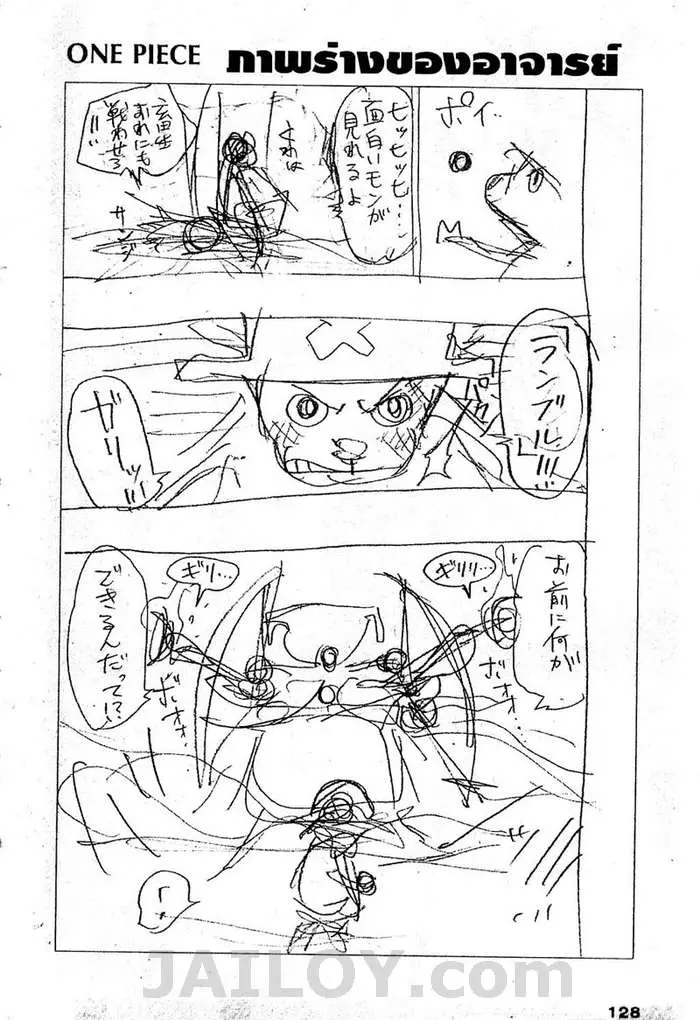 ONE PIECE ภาพร่างของอาจารย์
ポイ…
ヒッヒッヒ…
面白いモンが
見れるよ
くれは
おれにも
戦わせろ
!!
サンジ
「ランブル!!!」
パカ
ガリッ!!
お前に何が…
ギリリ…
ボオオ…
ギリ…
ボオオ…
できるんだって!?
「…
JAILOY.com
128